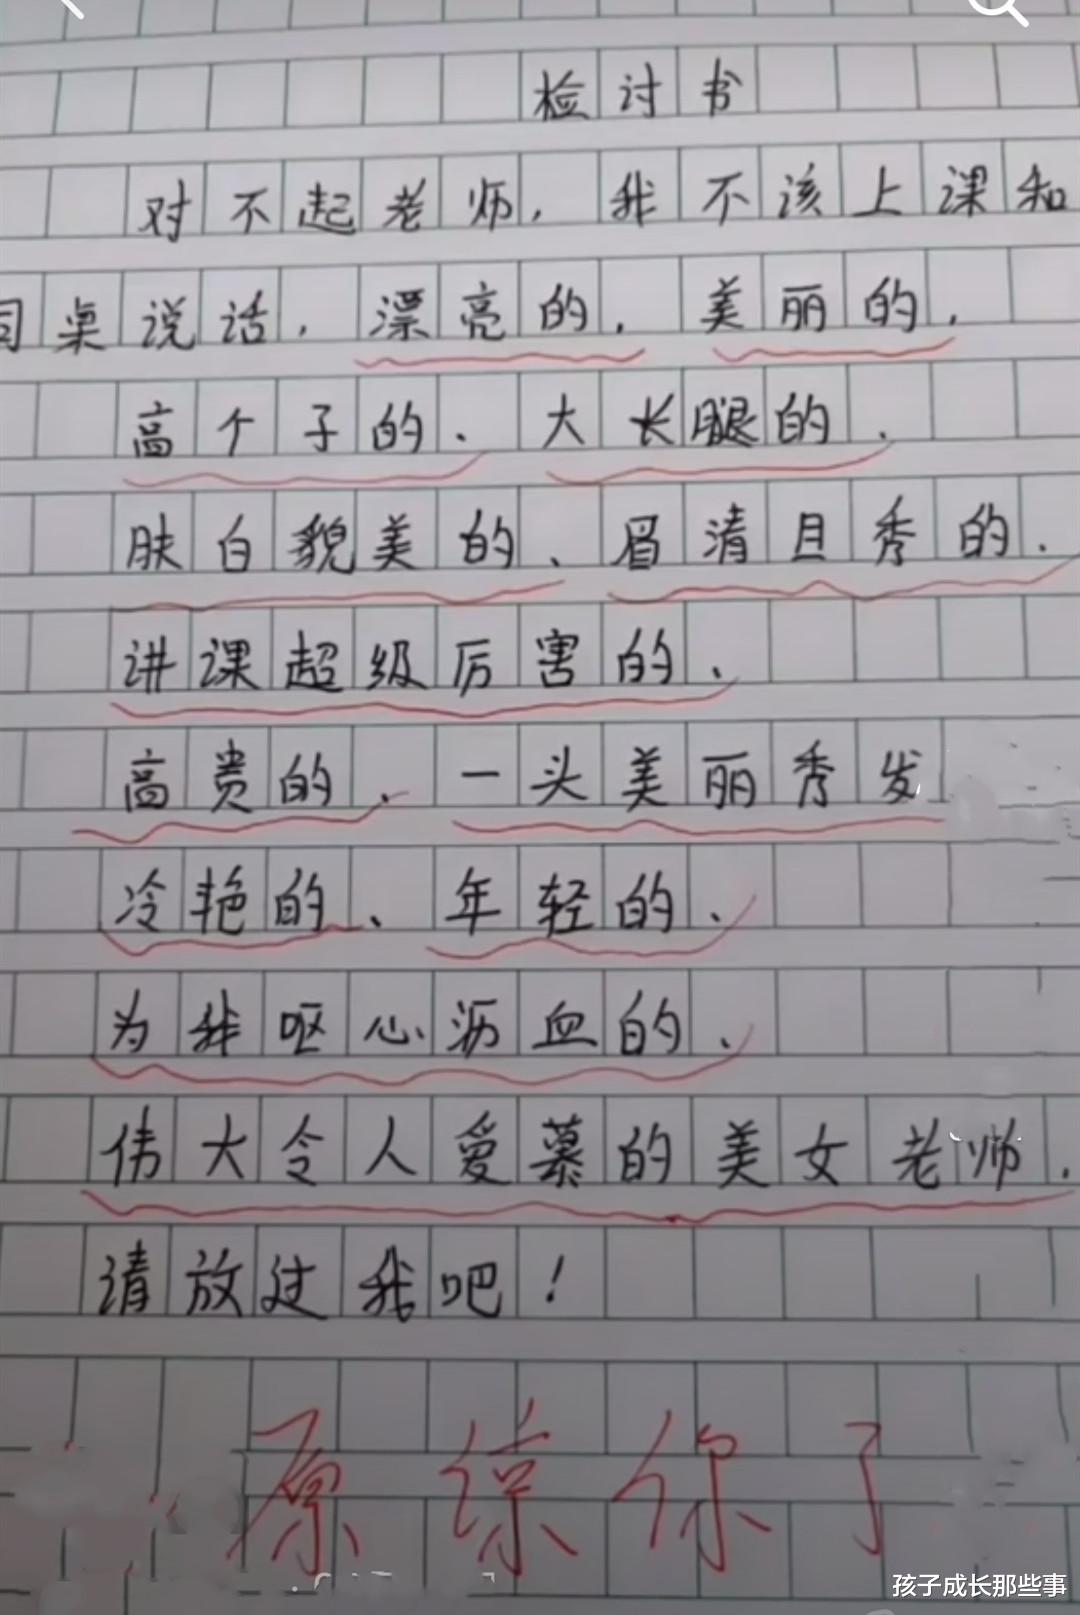 检讨书
对不起老师，我不该上课和
同桌说话，漂亮的，美丽的，
高个子的、大长腿的、
肤白貌美的、眉清目秀的、
讲课超级厉害的、
高贵的、一头美丽秀发
冷艳的、年轻的、
为我呕心沥血的、
伟大令人爱慕的美女老师，
请放过我吧！
原谅你了
孩子成长那些事